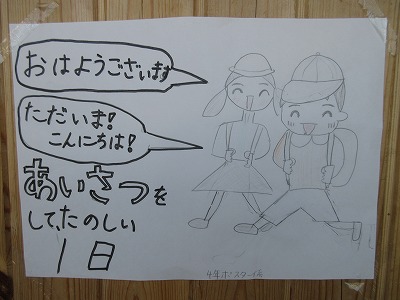 おはようございます
ただいま!
こんにちは!
あいさつを
して、たのしい
1日
4年ポスター係